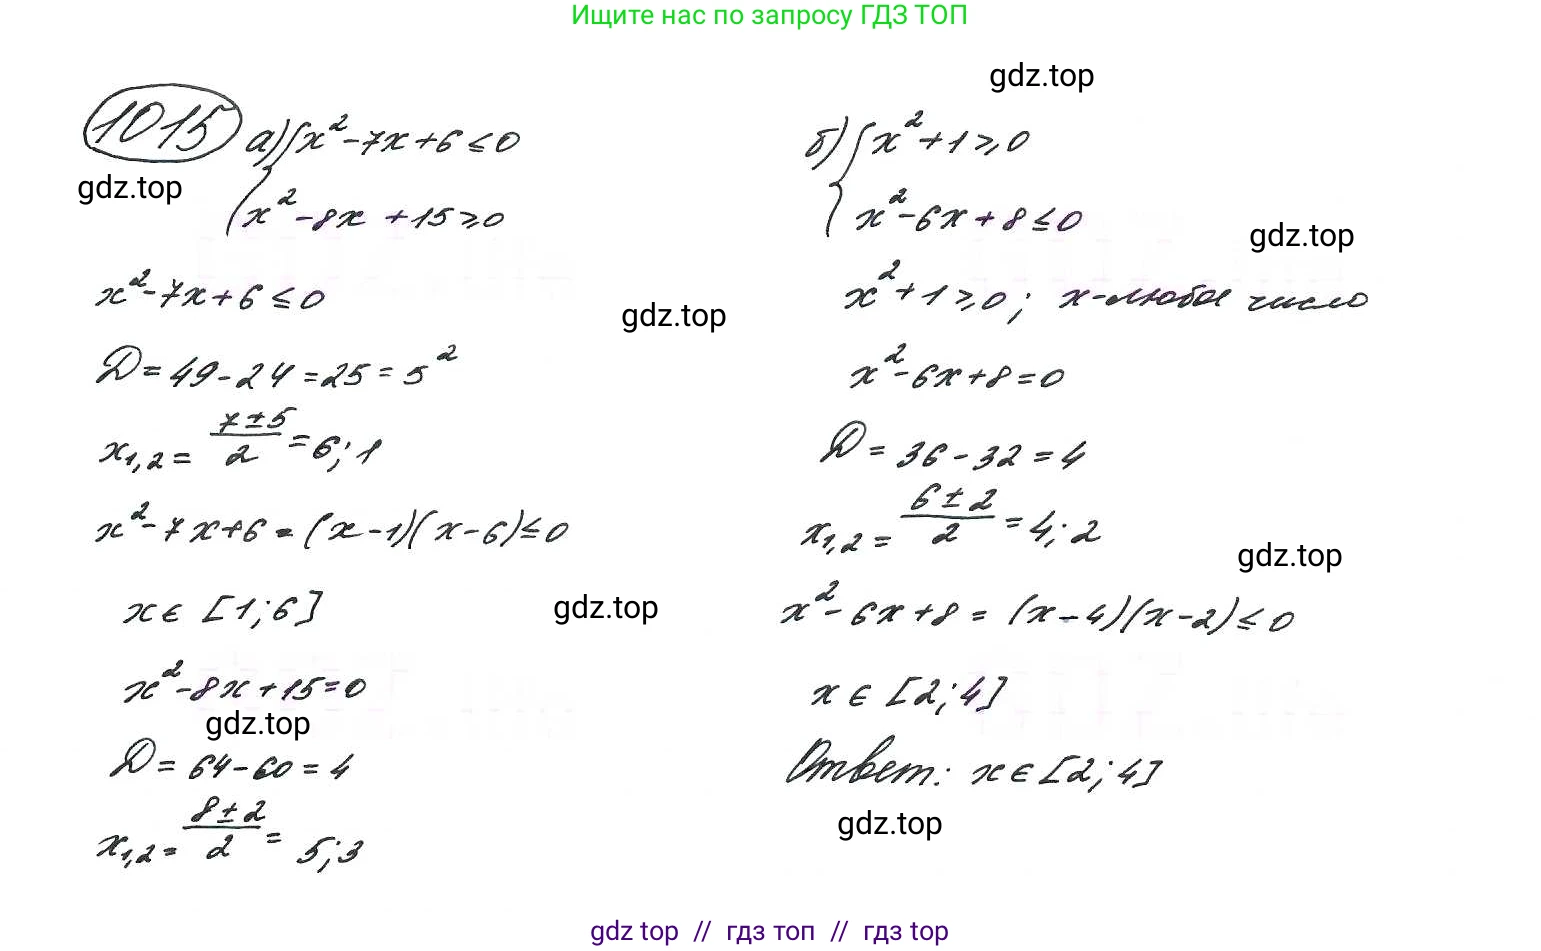 Ищите нас по запросу ГДЗ ТОП
gdz.top
1015 а) { x² - 7x + 6 ≤ 0
x² - 8x + 15 ≥ 0
gdz.top
x² - 7x + 6 ≤ 0
D = 49 - 24 = 25 = 5²
x₁,₂ = (7 ± 5)/2 = 6; 1
x² - 7x + 6 = (x - 1)(x - 6) ≤ 0
x ∈ [1; 6]
x² - 8x + 15 = 0
gdz.top
D = 64 - 60 = 4
x₁,₂ = (8 ± 2)/2 = 5; 3
gdz.top
gdz.top
б) { x² + 1 ≥ 0
x² - 6x + 8 ≤ 0
gdz.top
x² + 1 ≥ 0; x - любое число
x² - 6x + 8 = 0
D = 36 - 32 = 4
x₁,₂ = (6 ± 2)/2 = 4; 2
gdz.top
x² - 6x + 8 = (x - 4)(x - 2) ≤ 0
x ∈ [2; 4]
Ответ: x ∈ [2; 4]
gdz.top
gdz top // гдз топ // гдз top